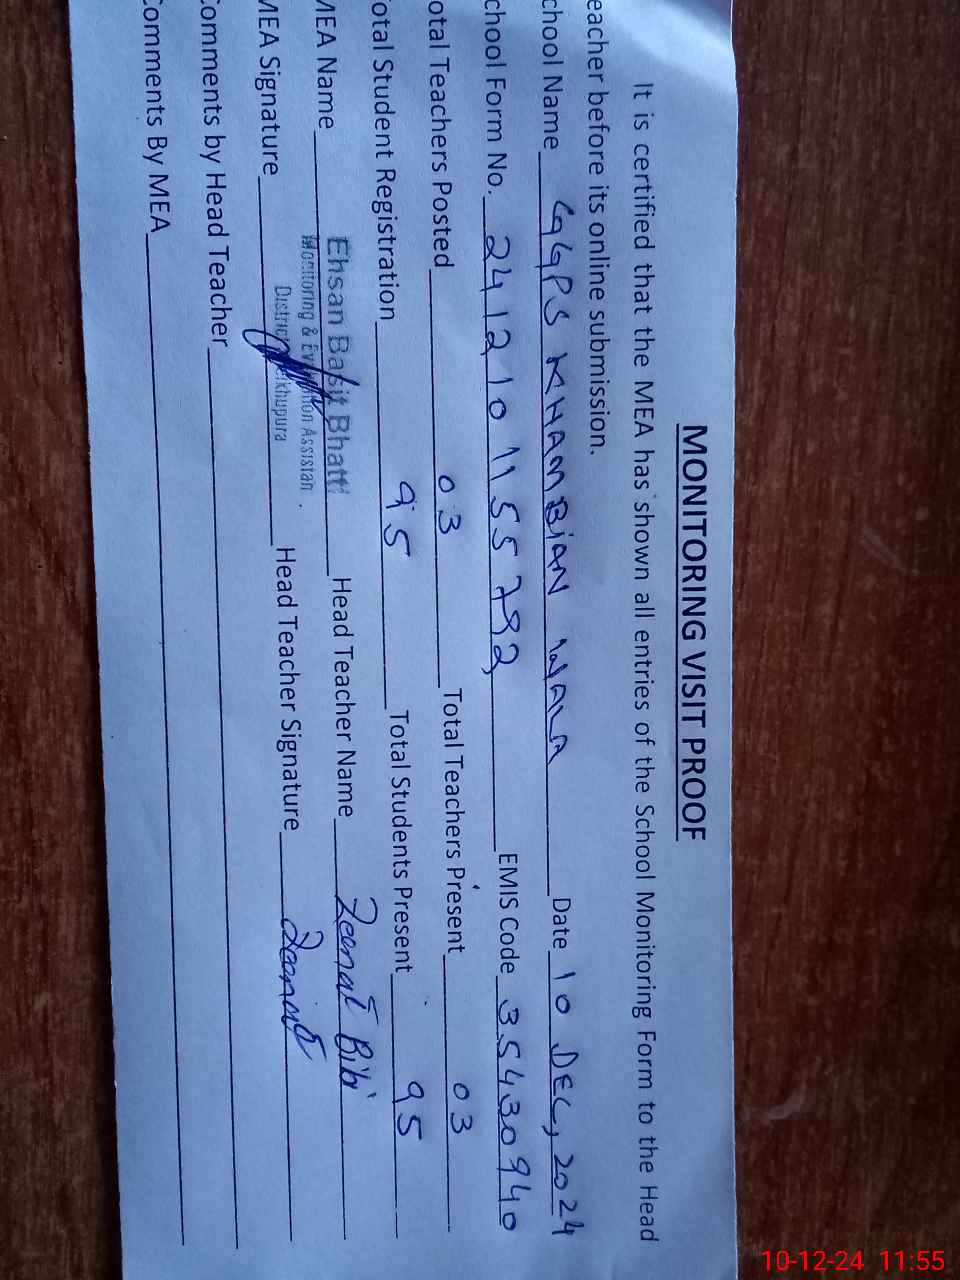 MONITORING VISIT PROOF
It is certified that the MEA has shown all entries of the School Monitoring Form to the Head
eacher before its online submission.
chool Name GGPS KHAMBIAN WALA Date 10 DEC, 2024
chool Form No. 2412101155792 EMIS Code 35430940
otal Teachers Posted 03 Total Teachers Present 03
otal Student Registration 95 Total Students Present 95
MEA Name Ehsan Basit Bhatti Head Teacher Name Zeenat Bibi
Monitoring & Evaluation Assistan
MEA Signature District Sheikhupura Head Teacher Signature Zeenat
Comments by Head Teacher
Comments By MEA
10-12-24 11:55